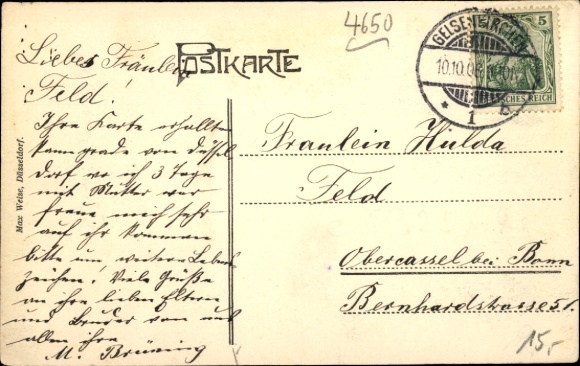 4650
Liebes Fräulein
POSTKARTE
Feld!
GELSENKIRCHEN
10.10.06
* 1 b
5
DEUTSCHES REICH
Ihre Karte erhalten
kam grade von Düssel
dorf wo ich 3 Tage
mit Mutter war
freue mich sehr
auf ihr kommen
bitte um weitere Lebens
zeichen! Viele Grüße
an ihre lieben Eltern
und Bruder von uns
allen ihre
M. Brüning
Max Weise, Düsseldorf.
Fräulein Hulda
Feld
Obercassel bei Bonn
Bernhardstrasse 51.
15,-